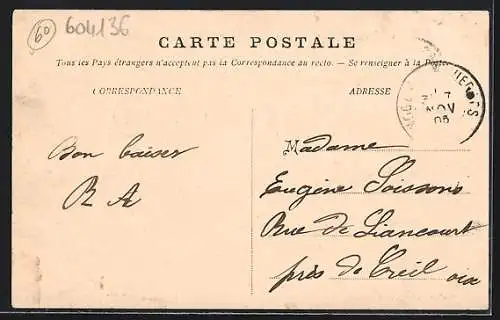 60 604136
CARTE POSTALE
Tous les Pays étrangers n'acceptent pas la Correspondance au recto. — Se renseigner à la Poste
CORRESPONDANCE
Bon baiser
R A
ADRESSE
7
NOV
05
Madame
Eugène Soissons
Rue de Liancourt
près de Creil oise